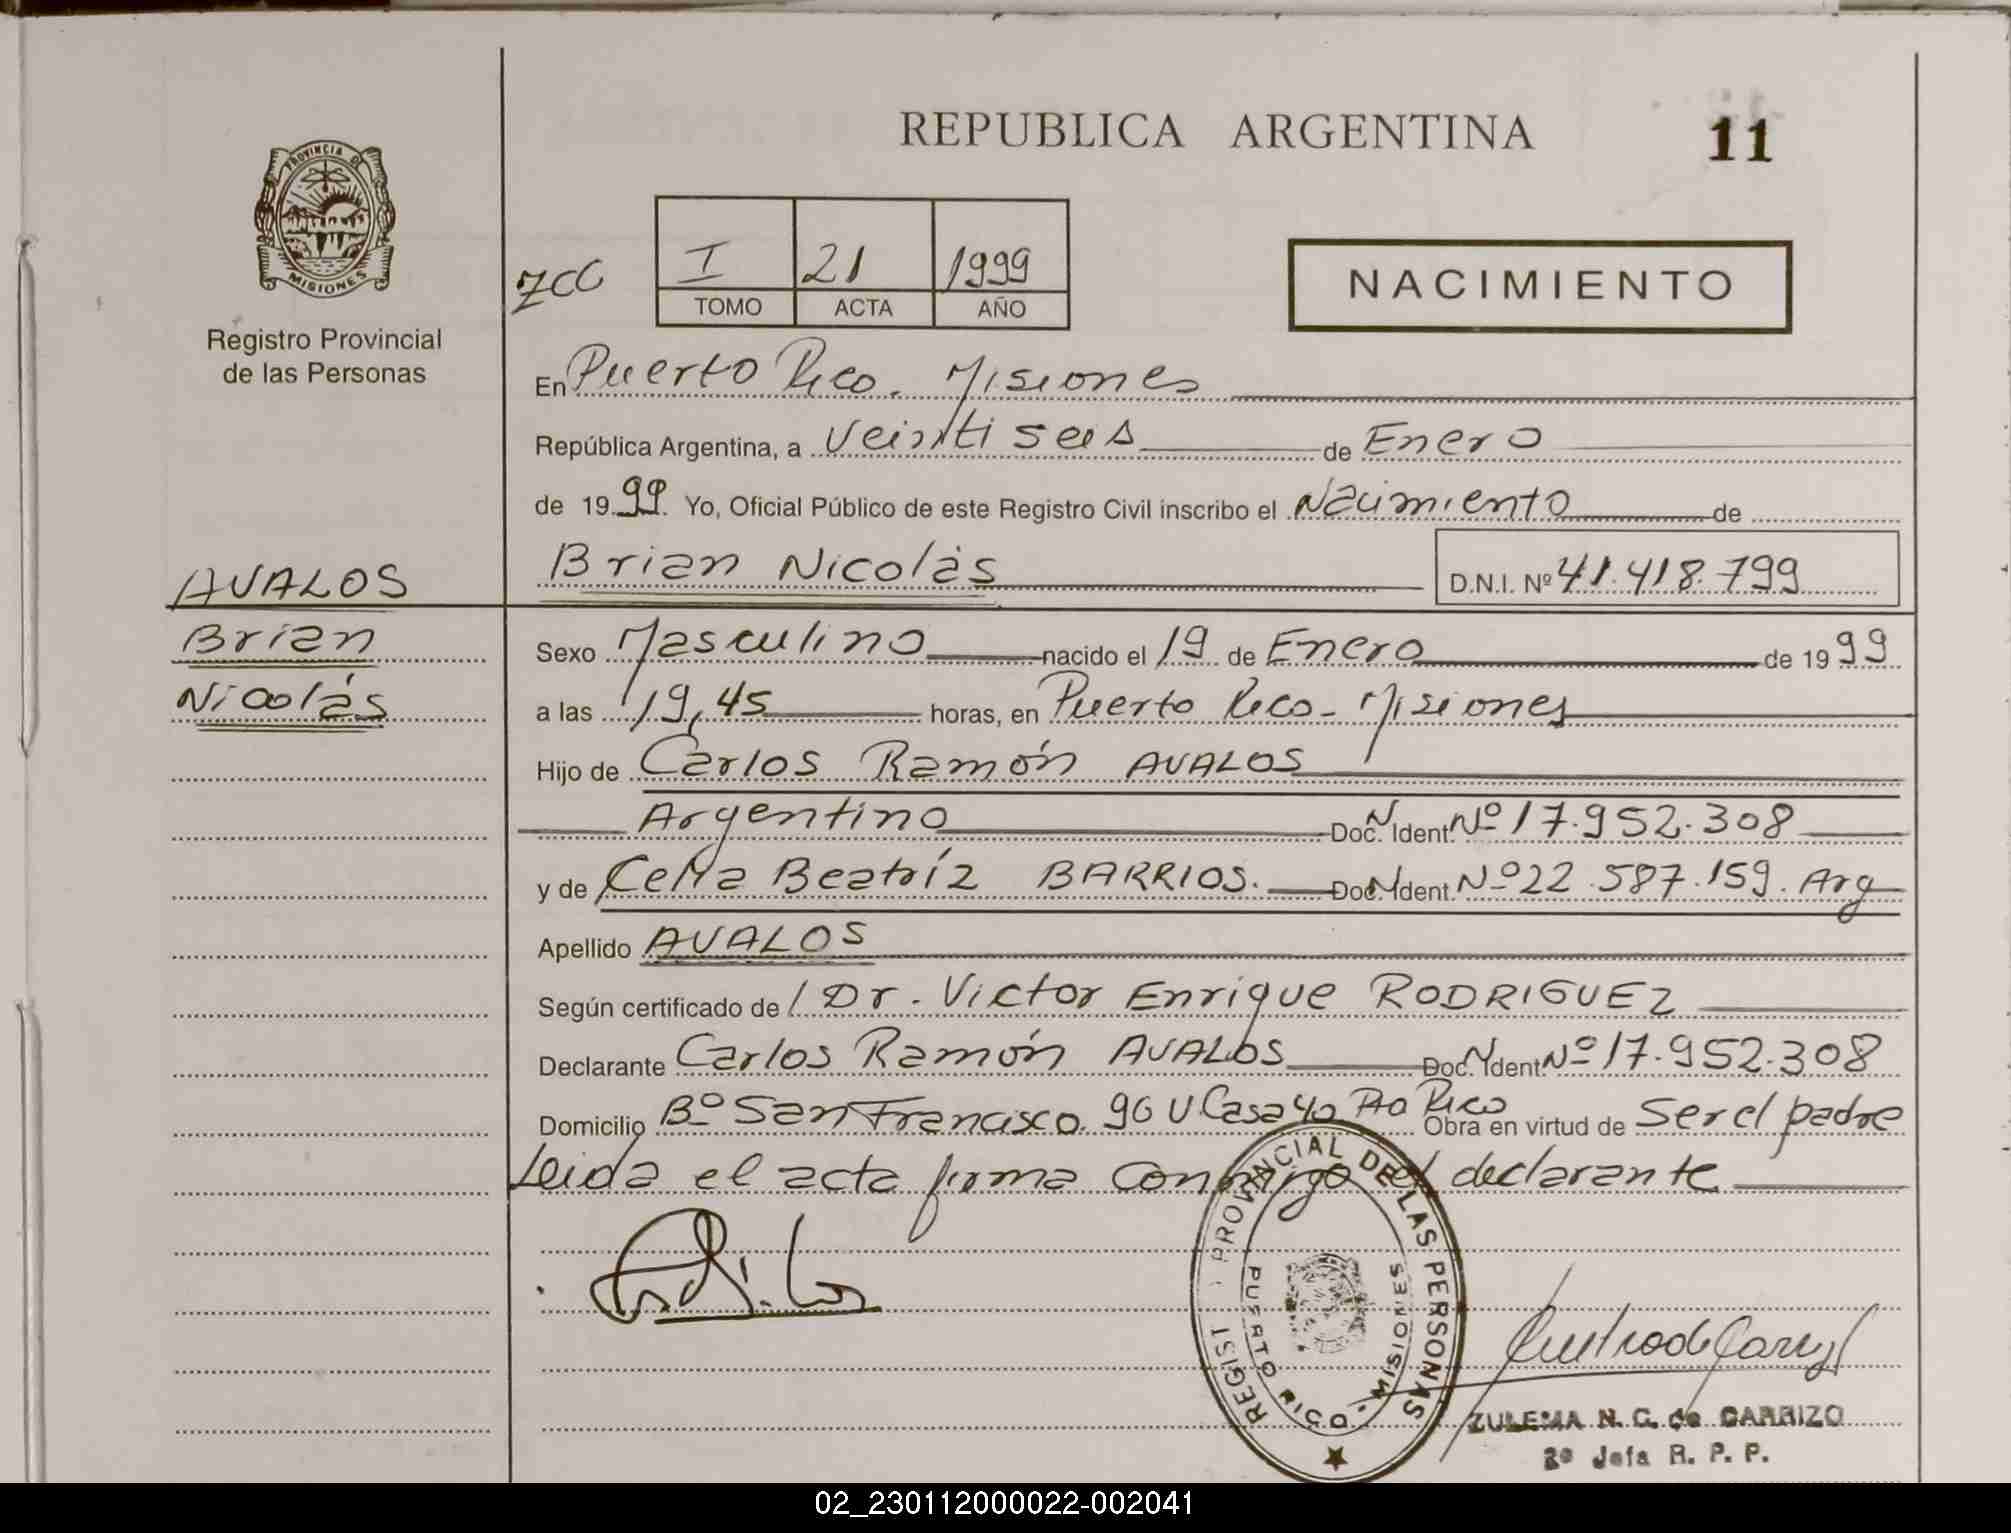 REPUBLICA ARGENTINA
11
PROVINCIA D
MISIONES
Registro Provincial
de las Personas
ZCC
I 21 1999
TOMO ACTA AÑO
NACIMIENTO
En Puerto Rico. Misiones
República Argentina, a Veintiseis de Enero
de 1999. Yo, Oficial Público de este Registro Civil inscribo el Nacimiento de
AVALOS
Brian Nicolás D.N.I. Nº 41.418.799
Brian
Sexo Masculino nacido el 19 de Enero de 1999
Nicolás
a las 19,45 horas, en Puerto Rico - Misiones
Hijo de Carlos Ramón AVALOS
Argentino Doc. Ident. Nº 17.952.308
y de Celia Beatríz BARRIOS. Doc. Ident. Nº 22.587.159. Arg
Apellido AVALOS
Según certificado de / Dr. Victor Enrique RODRIGUEZ
Declarante Carlos Ramón AVALOS Doc. Ident Nº 17.952.308
Domicilio Bº San Francisco. 90 V Casa 40 Pto Rico Obra en virtud de Ser el padre
Leida el acta firma conmigo el declarante
REGIST PROVINCIAL DE LAS PERSONAS
PUERTO RICO - MISIONES
ZULEMA N. C. de CARRIZO
2º Jefa R. P. P.
02_230112000022-002041